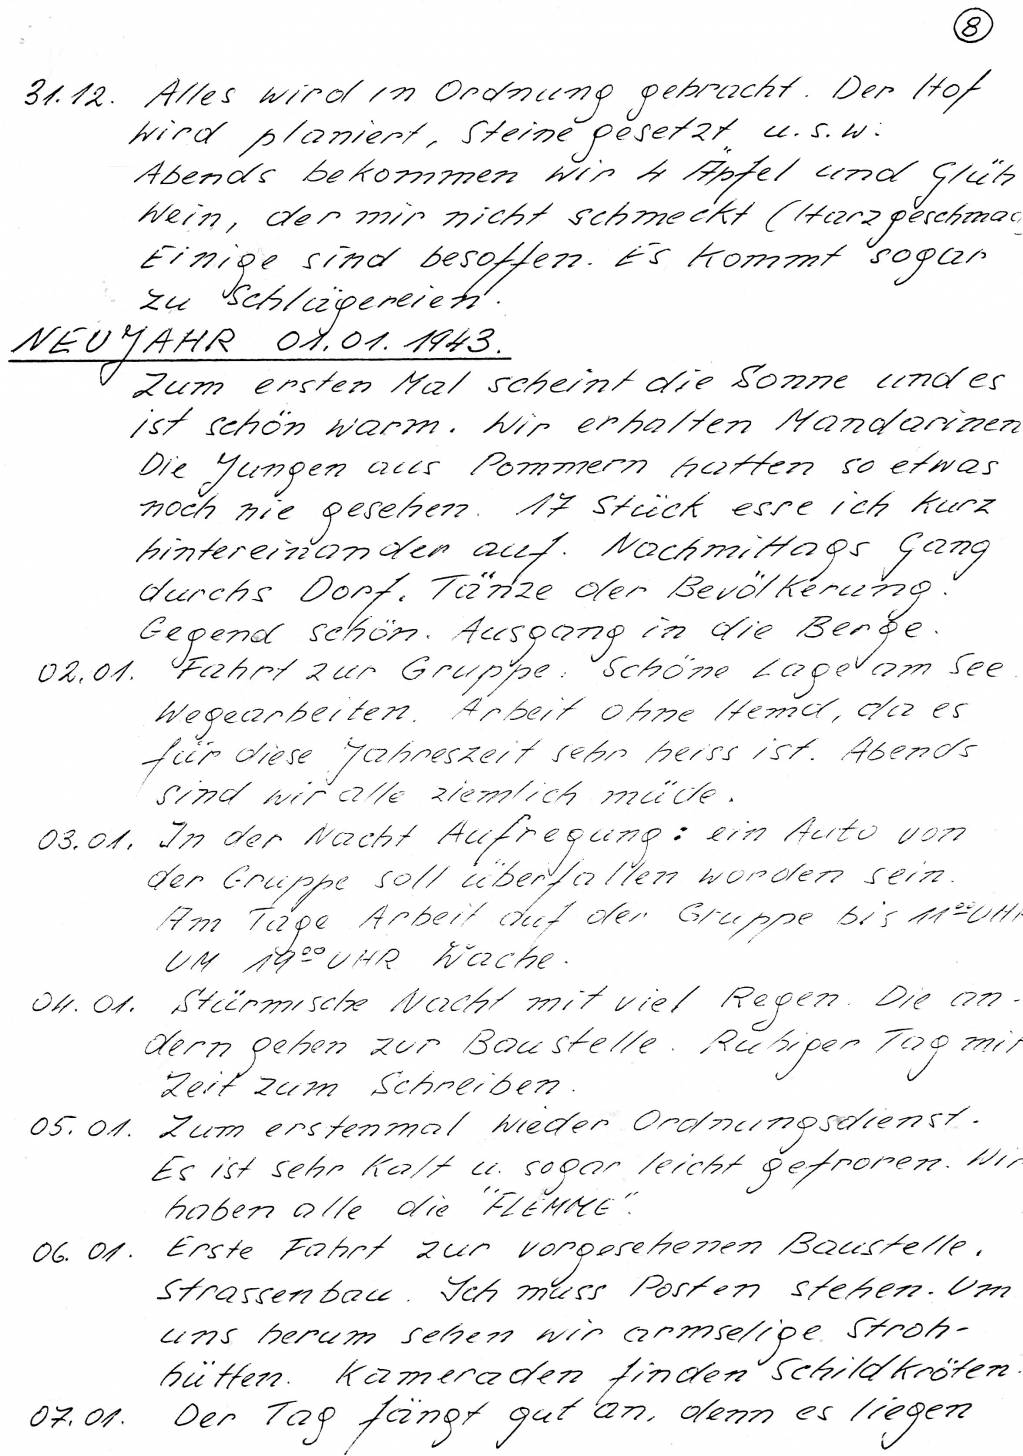 8
31.12. Alles wird in Ordnung gebracht. Der Hof
wird planiert, Steine gesetzt u.s.w.
Abends bekommen wir 4 Äpfel und Glüh
Wein, der mir nicht schmeckt (Harzgeschmac
Einige sind besoffen. Es kommt sogar
zu Schlägereien.
NEUJAHR 01.01.1943.
Zum ersten Mal scheint die Sonne und es
ist schön warm. Wir erhalten Mandarinen
Die Jungen aus Pommern hatten so etwas
noch nie gesehen. 17 Stück esse ich kurz
hintereinander auf. Nachmittags Gang
durchs Dorf. Tänze der Bevölkerung.
Gegend schön. Ausgang in die Berge.
02.01. Fahrt zur Gruppe. Schöne Lage am See
Wegearbeiten. Arbeit ohne Hemd, da es
für diese Jahreszeit sehr heiss ist. Abends
sind wir alle ziemlich müde.
03.01. In der Nacht Aufregung: ein Auto von
der Gruppe soll überfallen worden sein.
Am Tage Arbeit auf der Gruppe bis 11⁰⁰ UHR
UM 19⁰⁰ UHR Wache.
04.01. Stürmische Nacht mit viel Regen. Die an-
dern gehen zur Baustelle. Ruhiger Tag mit
Zeit zum Schreiben.
05.01. Zum erstenmal wieder Ordnungsdienst.
Es ist sehr kalt u. sogar leicht gefroren. Wir
haben alle die "FLEMME".
06.01. Erste Fahrt zur vorgesehenen Baustelle.
Strassenbau. Ich muss Posten stehen. Um
uns herum sehen wir armselige Stroh-
hütten. Kameraden finden Schildkröten.
07.01. Der Tag fängt gut an, denn es liegen